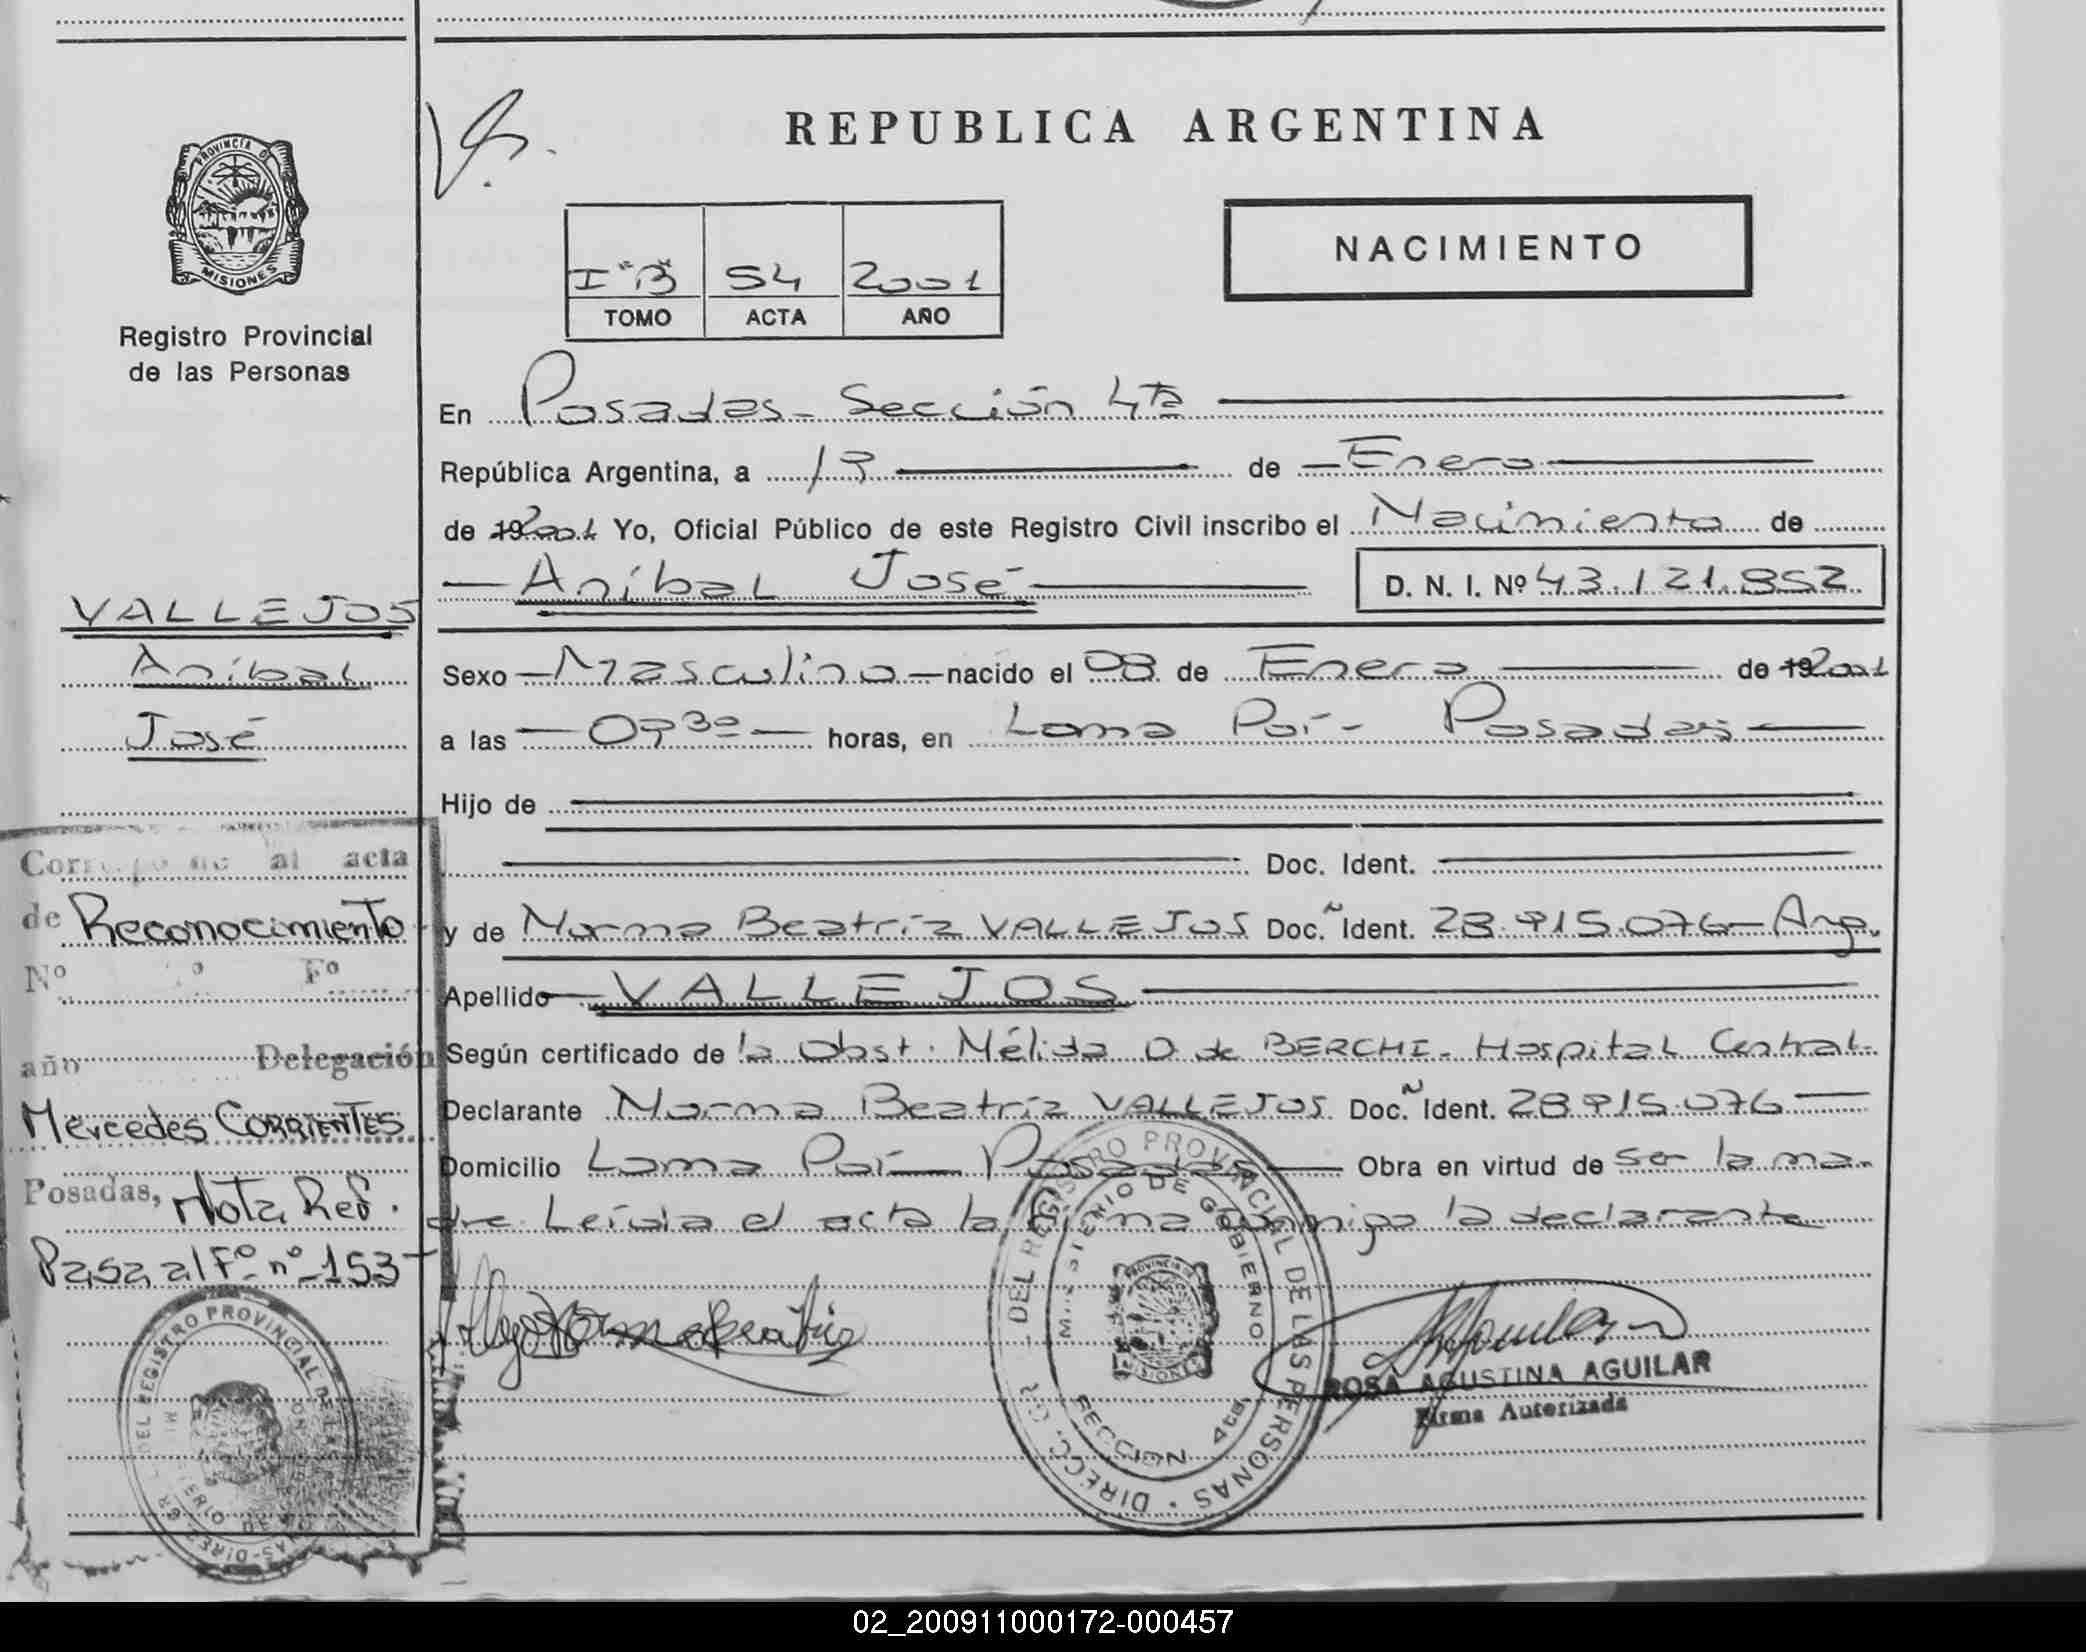 REPUBLICA ARGENTINA
PROVINCIA DE
MISIONES
Registro Provincial
de las Personas
I "B" 54 2001
TOMO ACTA AÑO
NACIMIENTO
En Posadas - Sección 4ta
República Argentina, a de Enero
de 19 2001 Yo, Oficial Público de este Registro Civil inscribo el Nacimiento de
Aníbal José D. N. I. Nº 43.121.852
VALLEJOS
Aníbal
José
Sexo Masculino nacido el 08 de Enero de 19 2001
a las horas, en Loma Posadas
Hijo de
Doc. Ident.
y de Norma Beatríz VALLEJOS Doc. Ident. 28.915.076 - Arg.
Apellido VALLEJOS
Según certificado de la Obst. Nélida O. de BERCHI - Hospital Central -
Declarante Norma Beatríz VALLEJOS Doc. Ident. 28.915.076
Domicilio Loma Posadas Obra en virtud de ser la ma-
dre Leída el acta la firma conmigo la declarante
al acta
de Reconocimiento
Nº Fº
año Delegación
Mercedes CORRIENTES
Posadas, Nota Ref.
Pasa al Fº nº 153
DEL REGISTRO PROVINCIAL DE LAS
Norma Beatriz
DIRECC. GR. DEL REGISTRO PROVINCIAL DE LAS PERSONAS
MINISTERIO DE GOBIERNO
SECCION 4ta
ROSA AGUSTINA AGUILAR
Firma Autorizada
02_200911000172-000457